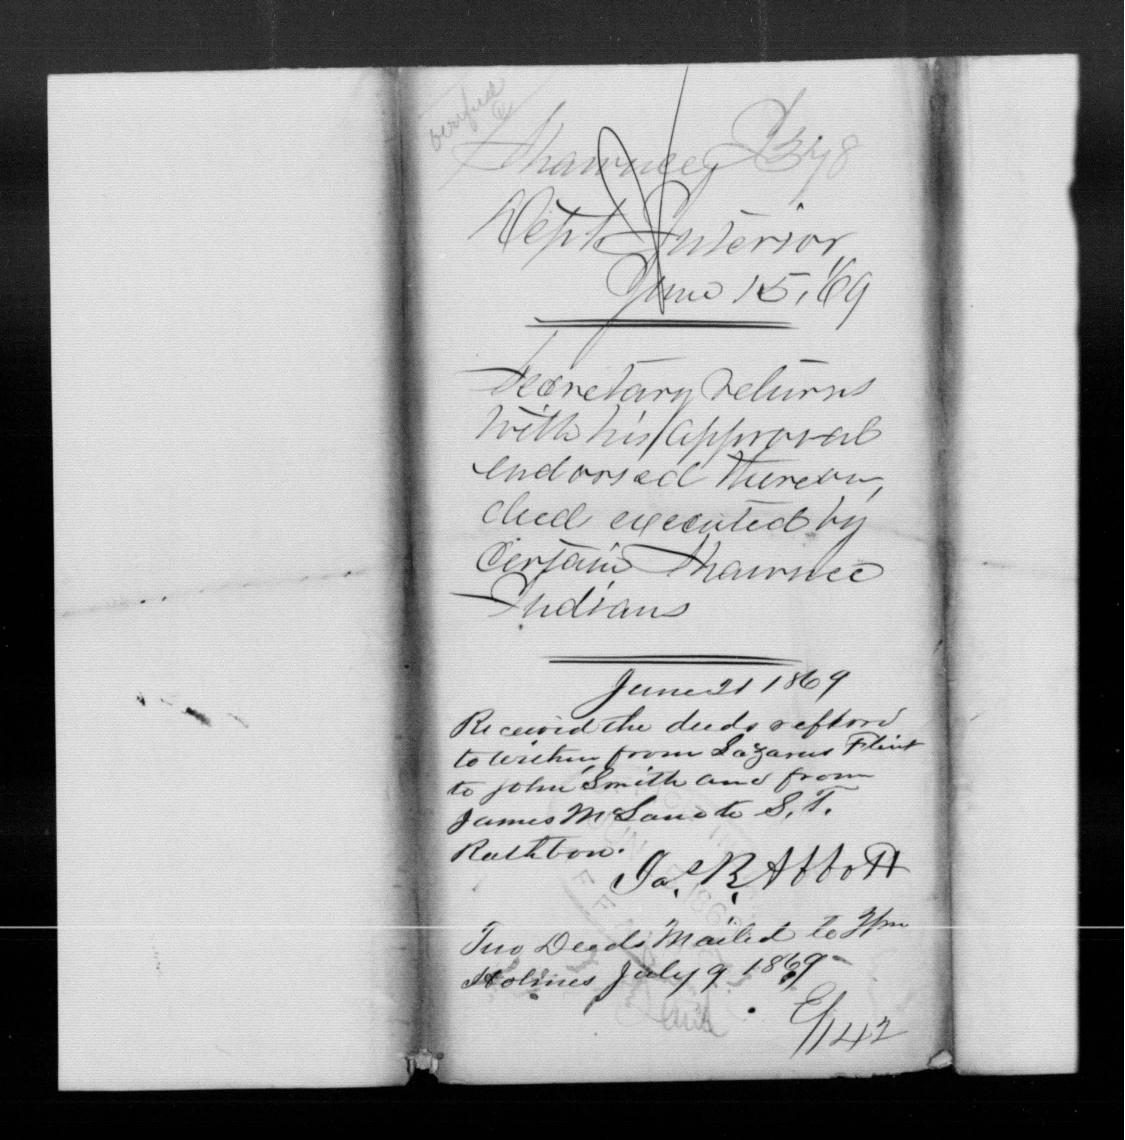 verified
Shawnee I 378
Dept Interior
June 15, '69
Secretary returns
with his approval
endorsed thereon,
deed executed by
Certain Shawnee
Indians
June 21 1869
Received the deeds refford
to within from Lazarus Flint
to John Smith and from
James M Lane to S. T.
Rathbon.
Jas. B. Abbott
Two Deeds Mailed to Wm
Holmes July 9 1869
E/142